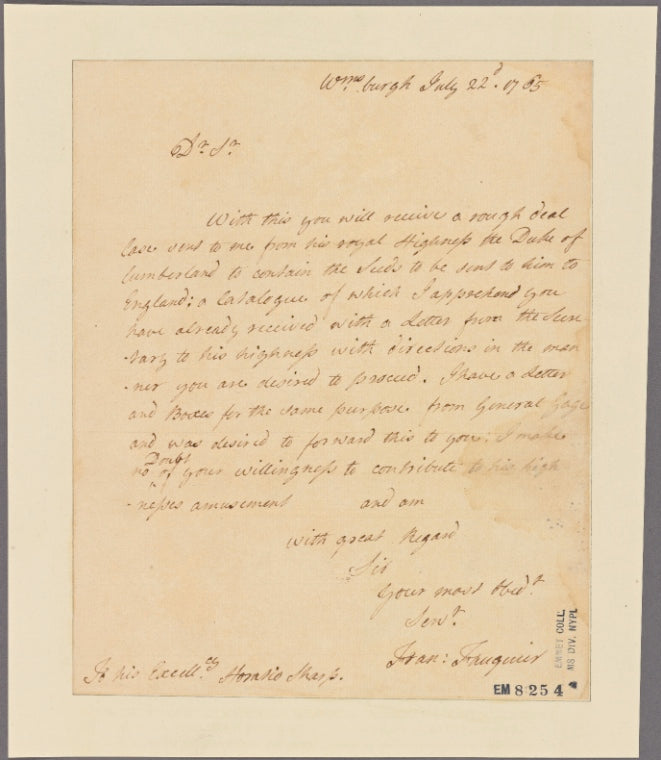 Wms.burgh July 22d. 1765
Dr. Sr.
With this you will receive a rough deal
Case sent to me from his royal Highness the Duke of
Cumberland to contain the Seeds to be sent to him to
England; a Catalogue of which I apprehend you
have already received with a Letter from the Secre
-tary to his highness with directions in the man
-ner you are desired to proceed. I have a Letter
and Boxes for the same purpose from General Gage
and was desired to forward this to you. I make
no Doubt of your willingness to contribute to his high
-nesses amusement and am
with great Regard
Sir
Your most Obedt.
Servt.
Fran: Fauquier
To his Excell.cy Horatio Sharp.
EMMET COLL.
MS DIV. NYPL
EM 8254